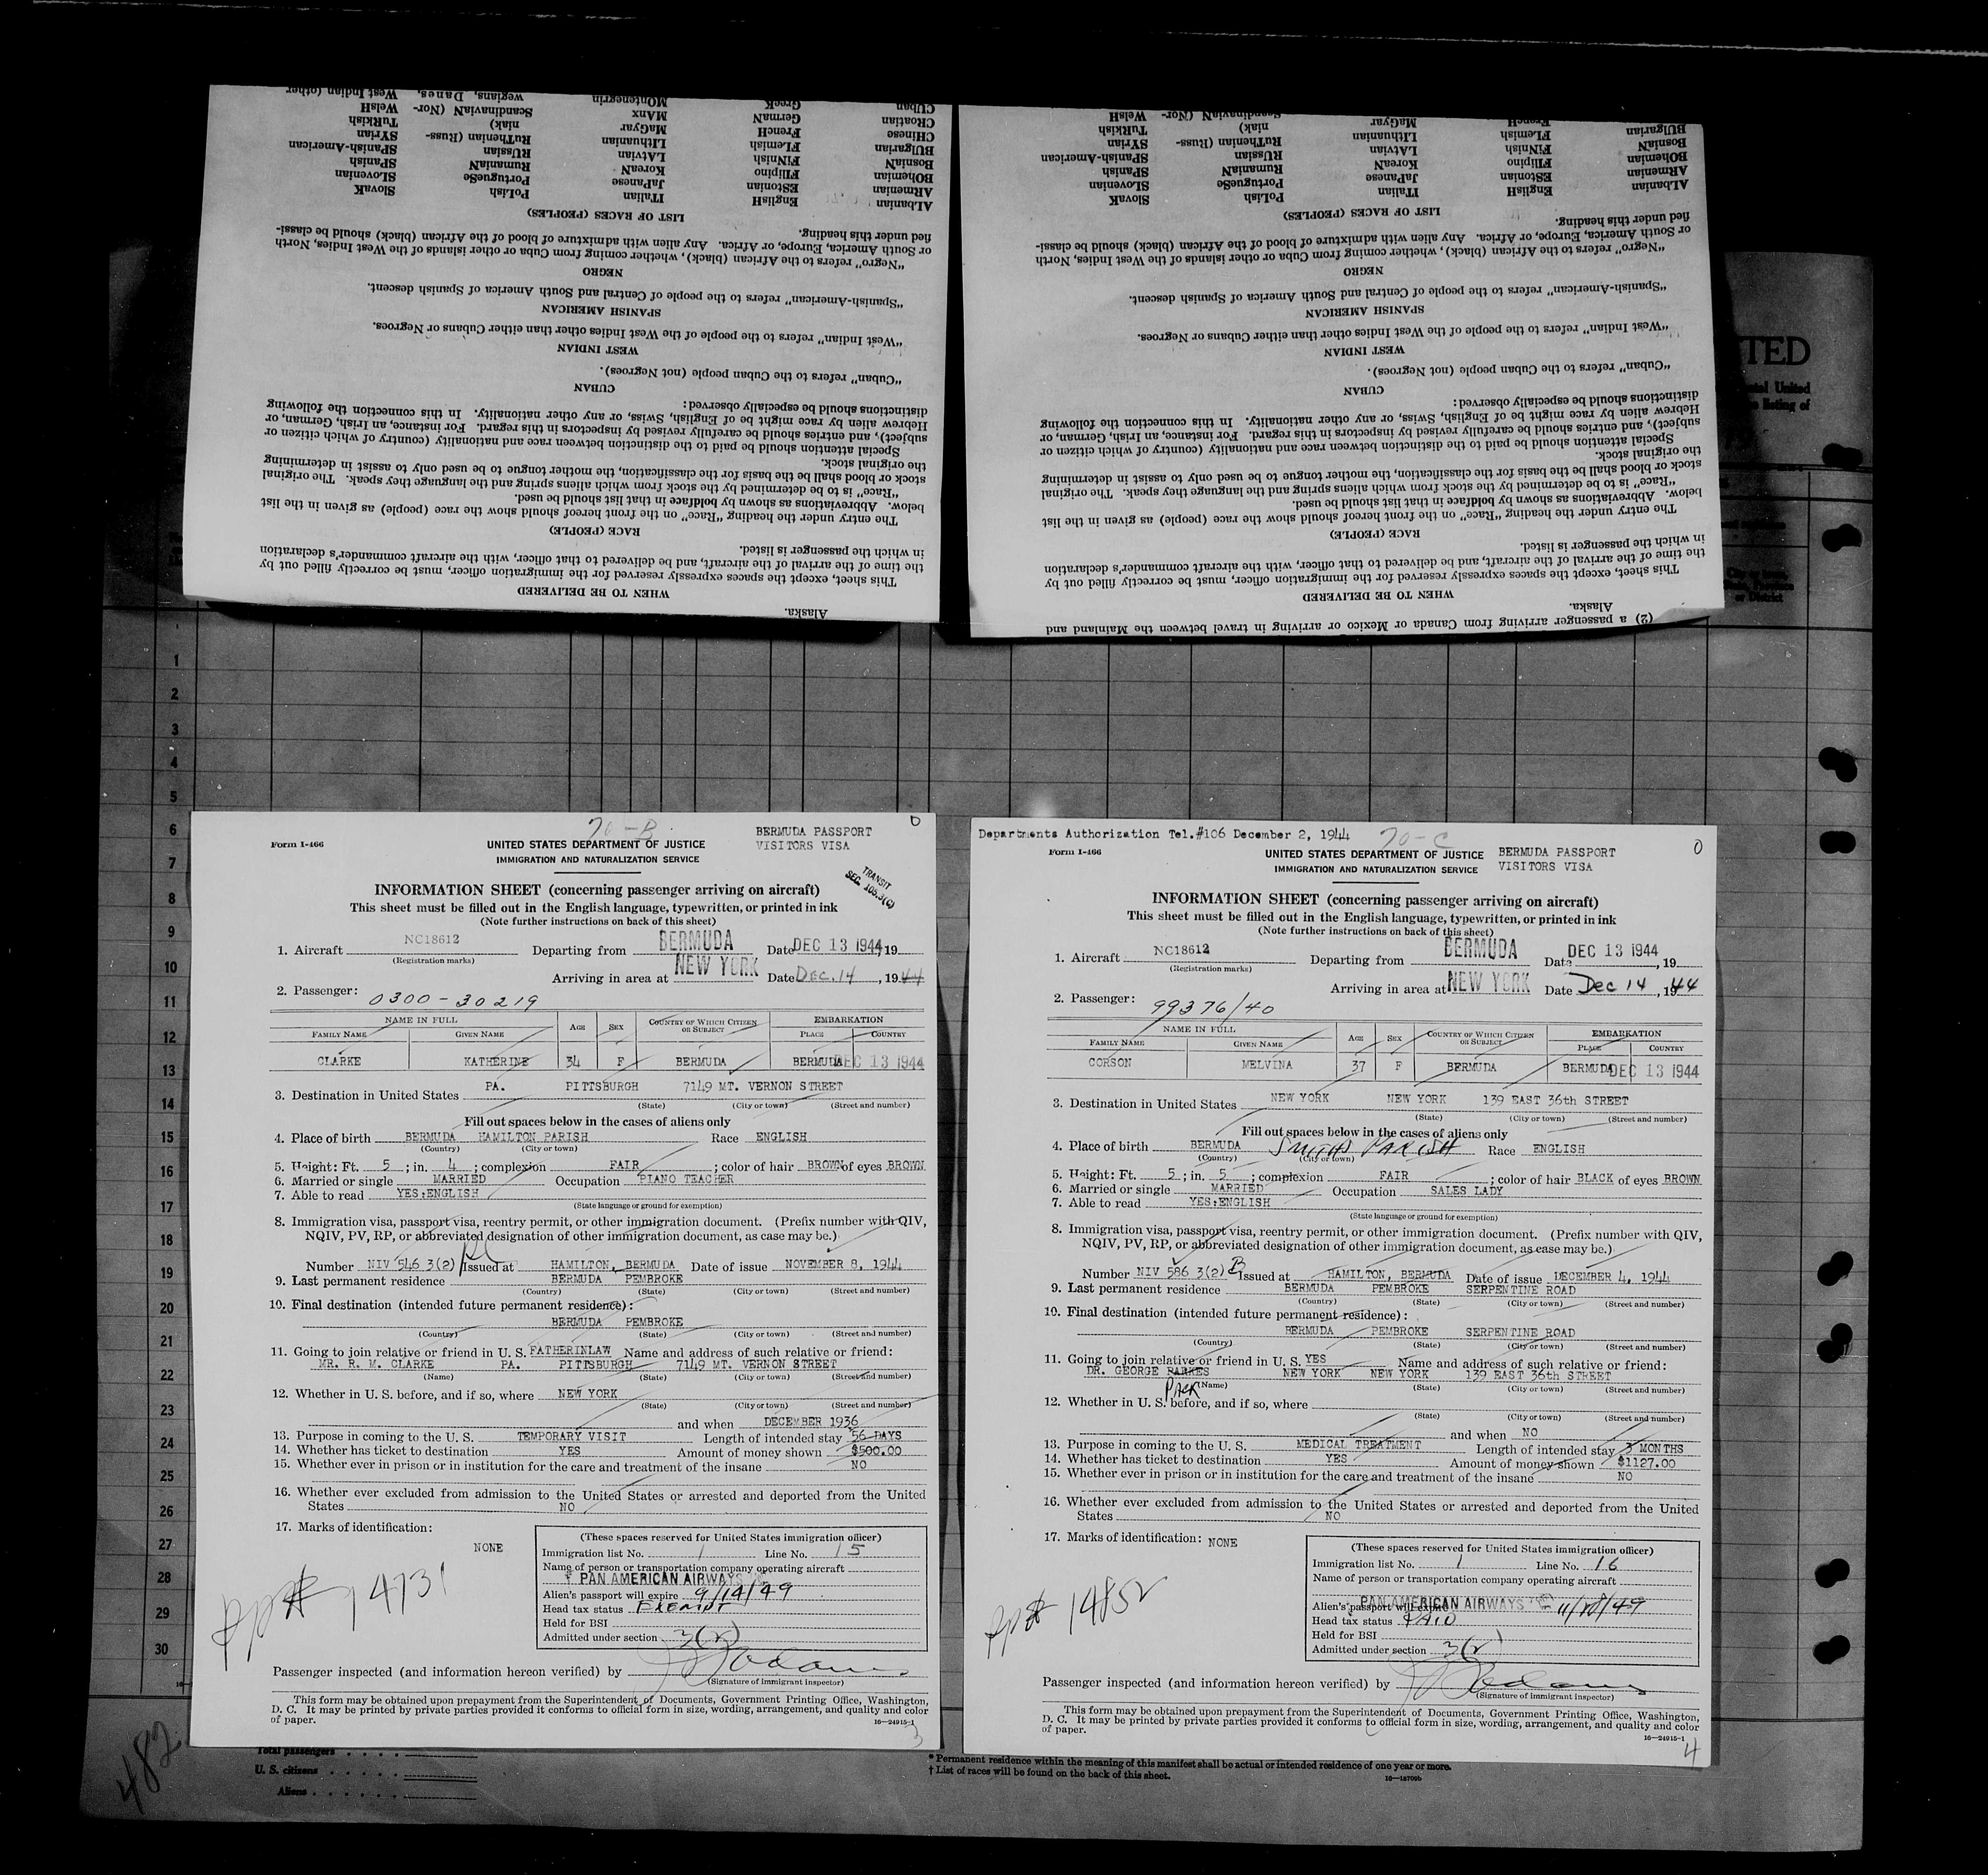 WHEN TO BE DELIVERED
Alaska.
This sheet, except the spaces expressly reserved for the immigration officer, must be correctly filled out by
the time of the arrival of the aircraft, and be delivered to that officer, with the aircraft commander's declaration
in which the passenger is listed.
RACE (PEOPLE)
The entry under the heading "Race" on the front hereof should show the race (people) as given in the list
below. Abbreviations as shown by boldface in that list should be used.
"Race" is to be determined by the stock from which aliens spring and the language they speak. The original
stock or blood shall be the basis for the classification, the mother tongue to be used only to assist in determining
the original stock.
Special attention should be paid to the distinction between race and nationality (country of which citizen or
subject), and entries should be carefully revised by inspectors in this regard. For instance, an Irish, German, or
Hebrew alien by race might be of English, Swiss, or any other nationality. In this connection the following
distinctions should be especially observed:
CUBAN
"Cuban" refers to the Cuban people (not Negroes).
WEST INDIAN
"West Indian" refers to the people of the West Indies other than either Cubans or Negroes.
SPANISH AMERICAN
"Spanish-American" refers to the people of Central and South America of Spanish descent.
NEGRO
"Negro" refers to the African (black), whether coming from Cuba or other islands of the West Indies, North
or South America, Europe, or Africa. Any alien with admixture of blood of the African (black) should be classi-
fied under this heading.
LIST OF RACES (PEOPLES)
ALbanian EnglisH ITalian PoLish SlovaK
ARmenian EStonian JaPanese PortugueSe SLOvenian
BOhemian FIlipino KoreaN RumaniaN SPanish
BosniaN FiNnish LAtvian RUssian SPanish-American
BUlgarian FLemish LIthuanian RuThenian (Russ- SYrian
CHinese FrencH MaGyar niak) TuRkish
CRoatian GermaN MAnx ScandinaviaN (Nor- WelsH
CUban GreeK MOntenegrin wegians, Danes, West Indian (other
(2) a passenger arriving from Canada or Mexico or arriving in travel between the Mainland and
Alaska.
WHEN TO BE DELIVERED
This sheet, except the spaces expressly reserved for the immigration officer, must be correctly filled out by
the time of the arrival of the aircraft, and be delivered to that officer, with the aircraft commander's declaration
in which the passenger is listed.
RACE (PEOPLE)
The entry under the heading "Race" on the front hereof should show the race (people) as given in the list
below. Abbreviations as shown by boldface in that list should be used.
"Race" is to be determined by the stock from which aliens spring and the language they speak. The original
stock or blood shall be the basis for the classification, the mother tongue to be used only to assist in determining
the original stock.
Special attention should be paid to the distinction between race and nationality (country of which citizen or
subject), and entries should be carefully revised by inspectors in this regard. For instance, an Irish, German, or
Hebrew alien by race might be of English, Swiss, or any other nationality. In this connection the following
distinctions should be especially observed:
CUBAN
"Cuban" refers to the Cuban people (not Negroes).
WEST INDIAN
"West Indian" refers to the people of the West Indies other than either Cubans or Negroes.
SPANISH AMERICAN
"Spanish-American" refers to the people of Central and South America of Spanish descent.
NEGRO
"Negro" refers to the African (black), whether coming from Cuba or other islands of the West Indies, North
or South America, Europe, or Africa. Any alien with admixture of blood of the African (black) should be classi-
fied under this heading.
LIST OF RACES (PEOPLES)
ALbanian EnglisH ITalian PoLish SlovaK
ARmenian EStonian JaPanese PortugueSe SLOvenian
BOhemian FIlipino KoreaN RumaniaN SPanish
BosniaN FiNnish LAtvian RUssian SPanish-American
BUlgarian FLemish LIthuanian RuThenian (Russ- SYrian
FrencH MaGyar niak) TuRkish
ScandinaviaN (Nor- WelsH
TED
United
listing of
1
2
3
4
5
6
7
8
9
10
11
12
13
14
15
16
17
18
19
20
21
22
23
24
25
26
27
28
29
30
70-B
BERMUDA PASSPORT
VISITORS VISA
0
Form I-466
UNITED STATES DEPARTMENT OF JUSTICE
IMMIGRATION AND NATURALIZATION SERVICE
TRANSIT
SEC. 105.3(C)
INFORMATION SHEET (concerning passenger arriving on aircraft)
This sheet must be filled out in the English language, typewritten, or printed in ink
(Note further instructions on back of this sheet)
1. Aircraft NC18612 Departing from BERMUDA Date DEC 13 1944, 19
(Registration marks)
Arriving in area at NEW YORK Date DEC. 14, 1944
2. Passenger: 0300-30219
NAME IN FULL AGE SEX COUNTRY OF WHICH CITIZEN OR SUBJECT EMBARKATION
FAMILY NAME GIVEN NAME PLACE COUNTRY
CLARKE KATHERINE 34 F BERMUDA BERMUDA DEC 13 1944
3. Destination in United States PA. PITTSBURGH 7149 MT. VERNON STREET
(State) (City or town) (Street and number)
Fill out spaces below in the cases of aliens only
4. Place of birth BERMUDA HAMILTON PARISH Race ENGLISH
(Country) (City or town)
5. Height: Ft. 5; in. 4; complexion FAIR; color of hair BROWN of eyes BROWN
6. Married or single MARRIED Occupation PIANO TEACHER
7. Able to read YES:ENGLISH
(State language or ground for exemption)
8. Immigration visa, passport visa, reentry permit, or other immigration document. (Prefix number with QIV,
NQIV, PV, RP, or abbreviated designation of other immigration document, as case may be.)
Number NIV 546 3(2) Issued at HAMILTON, BERMUDA Date of issue NOVEMBER 8, 1944
9. Last permanent residence BERMUDA PEMBROKE
(Country) (State) (City or town) (Street and number)
10. Final destination (intended future permanent residence):
BERMUDA PEMBROKE
(Country) (State) (City or town) (Street and number)
11. Going to join relative or friend in U. S. FATHERINLAW Name and address of such relative or friend:
MR. R. M. CLARKE PA. PITTSBURGH 7149 MT. VERNON STREET
(Name) (State) (City or town) (Street and number)
12. Whether in U. S. before, and if so, where NEW YORK
(State) (City or town) (Street and number)
and when DECEMBER 1936
13. Purpose in coming to the U. S. TEMPORARY VISIT Length of intended stay 56 DAYS
14. Whether has ticket to destination YES Amount of money shown $500.00
15. Whether ever in prison or in institution for the care and treatment of the insane NO
16. Whether ever excluded from admission to the United States or arrested and deported from the United
States NO
17. Marks of identification:
NONE
pp# 14731
(These spaces reserved for United States immigration officer)
Immigration list No. 1 Line No. 15
Name of person or transportation company operating aircraft
PAN AMERICAN AIRWAYS
Alien's passport will expire 9/14/49
Head tax status EXEMPT
Held for BSI
Admitted under section 3(2)
Passenger inspected (and information hereon verified) by
(Signature of immigrant inspector)
This form may be obtained upon prepayment from the Superintendent of Documents, Government Printing Office, Washington,
D. C. It may be printed by private parties provided it conforms to official form in size, wording, arrangement, and quality and color
of paper.
16—24915-1
3
Departments Authorization Tel.#106 December 2, 1944
70-C
0
Form I-466
UNITED STATES DEPARTMENT OF JUSTICE
IMMIGRATION AND NATURALIZATION SERVICE
BERMUDA PASSPORT
VISITORS VISA
INFORMATION SHEET (concerning passenger arriving on aircraft)
This sheet must be filled out in the English language, typewritten, or printed in ink
(Note further instructions on back of this sheet)
1. Aircraft NC18612 Departing from BERMUDA Date DEC 13 1944, 19
(Registration marks)
Arriving in area at NEW YORK Date Dec 14, 1944
2. Passenger: 99376/40
NAME IN FULL AGE SEX COUNTRY OF WHICH CITIZEN OR SUBJECT EMBARKATION
FAMILY NAME GIVEN NAME PLACE COUNTRY
CORSON MELVINA 37 F BERMUDA BERMUDA DEC 13 1944
3. Destination in United States NEW YORK NEW YORK 139 EAST 36th STREET
(State) (City or town) (Street and number)
Fill out spaces below in the cases of aliens only
4. Place of birth BERMUDA SMITHS PARISH Race ENGLISH
(Country) (City or town)
5. Height: Ft. 5; in. 5; complexion FAIR; color of hair BLACK of eyes BROWN
6. Married or single MARRIED Occupation SALES LADY
7. Able to read YES:ENGLISH
(State language or ground for exemption)
8. Immigration visa, passport visa, reentry permit, or other immigration document. (Prefix number with QIV,
NQIV, PV, RP, or abbreviated designation of other immigration document, as case may be.)
Number NIV 586 3(2) B Issued at HAMILTON, BERMUDA Date of issue DECEMBER 4, 1944
9. Last permanent residence BERMUDA PEMBROKE SERPENTINE ROAD
(Country) (State) (City or town) (Street and number)
10. Final destination (intended future permanent residence):
BERMUDA PEMBROKE SERPENTINE ROAD
(Country) (State) (City or town) (Street and number)
11. Going to join relative or friend in U. S. YES Name and address of such relative or friend:
DR. GEORGE PARKES NEW YORK NEW YORK 139 EAST 36th STREET
PACK (Name) (State) (City or town) (Street and number)
12. Whether in U. S. before, and if so, where
(State) (City or town) (Street and number)
and when NO
13. Purpose in coming to the U. S. MEDICAL TREATMENT Length of intended stay 3 MONTHS
14. Whether has ticket to destination YES Amount of money shown $1127.00
15. Whether ever in prison or in institution for the care and treatment of the insane NO
16. Whether ever excluded from admission to the United States or arrested and deported from the United
States NO
17. Marks of identification: NONE
pp# 14852
(These spaces reserved for United States immigration officer)
Immigration list No. 1 Line No. 16
Name of person or transportation company operating aircraft
PAN AMERICAN AIRWAYS
Alien's passport will expire
Head tax status PAID
Held for BSI
Admitted under section 3(2)
Passenger inspected (and information hereon verified) by
(Signature of immigrant inspector)
This form may be obtained upon prepayment from the Superintendent of Documents, Government Printing Office, Washington,
D. C. It may be printed by private parties provided it conforms to official form in size, wording, arrangement, and quality and color
of paper.
16—24915-1
4
482
Total passengers
U. S. citizens
Aliens
* Permanent residence within the meaning of this manifest shall be actual or intended residence of one year or more.
† List of races will be found on the back of this sheet.
16—18709b